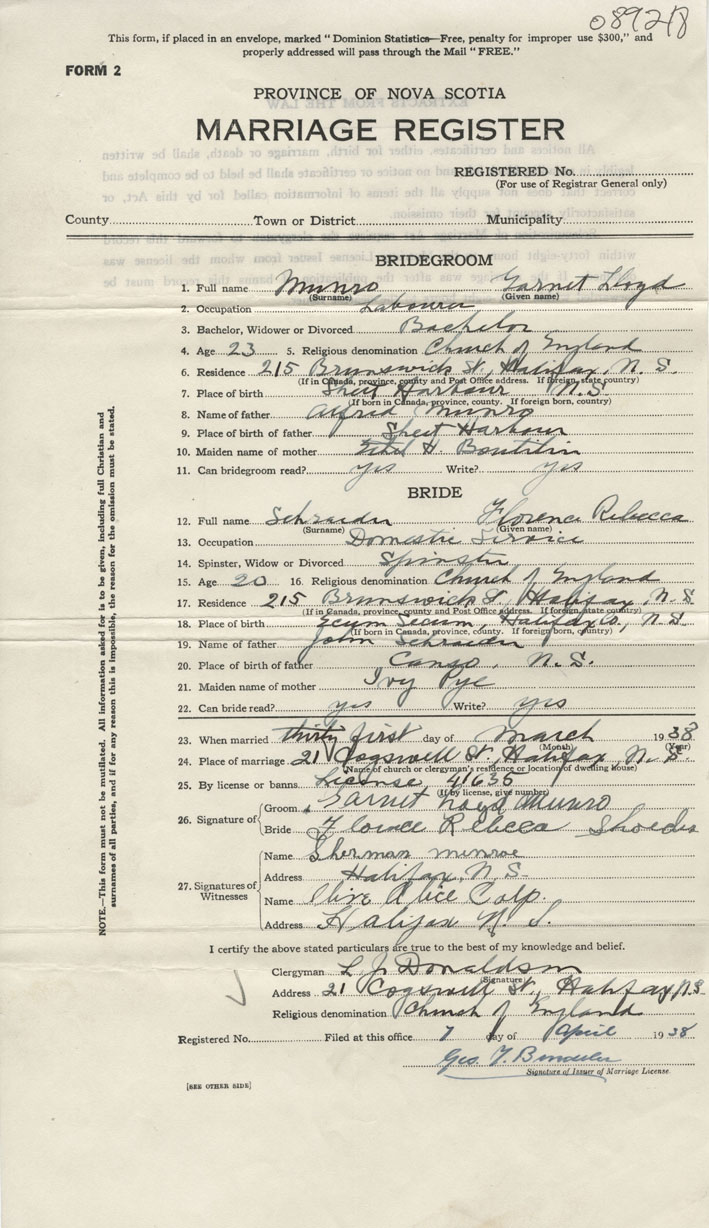 08921
This form, if placed in an envelope, marked " Dominion Statistics—Free, penalty for improper use $300," and
properly addressed will pass through the Mail "FREE."
FORM 2
PROVINCE OF NOVA SCOTIA
MARRIAGE REGISTER
REGISTERED No.
(For use of Registrar General only)
County Town or District Municipality
BRIDEGROOM
1. Full name Munro Garnet Lloyd
(Surname) (Given name)
2. Occupation Labourer
3. Bachelor, Widower or Divorced Bachelor
4. Age 23 5. Religious denomination Church of England
6. Residence 215 Brunswick St., Halifax, N. S.
(If in Canada, province, county and Post Office address. If foreign, state country)
7. Place of birth Sheet Harbour N.S.
(If born in Canada, province, county. If foreign born, country)
8. Name of father Alfred Munro
9. Place of birth of father Sheet Harbour
10. Maiden name of mother Ethel H. Boutilin
11. Can bridegroom read? yes Write? yes
BRIDE
12. Full name Schraeder Florence Rebecca
(Surname) (Given name)
13. Occupation Domestic Service
14. Spinster, Widow or Divorced Spinster
15. Age 20 16. Religious denomination Church of England
17. Residence 215 Brunswick St., Halifax, N. S.
(If in Canada, province, county and Post Office address. If foreign, state country)
18. Place of birth Ecum Secum, Halifax Co., N. S.
(If born in Canada, province, county. If foreign born, country)
19. Name of father John Schraeder
20. Place of birth of father Canso, N. S.
21. Maiden name of mother Ivy Pye
22. Can bride read? yes Write? yes
23. When married thirty first day of March 1938
(Month) (Year)
24. Place of marriage 21 Cogswell St, Halifax, N. S.
(Name of church or clergyman's residence or location of dwelling house)
25. By license or banns License 41635
(If by license, give number)
26. Signature of Groom Garnet Loyd Munro
Bride Florence Rebecca
27. Signatures of Witnesses
Name Sherman munroe
Address Halifax, N. S.
Name Olive Alice Colp.
Address Halifax N. S.
I certify the above stated particulars are true to the best of my knowledge and belief.
Clergyman L. J. Donaldson
(Signature)
Address 21 Cogswell St., Halifax, N.S.
Religious denomination Church of England
Registered No. Filed at this office 7 day of April 1938
Geo. T.
Signature of Issuer of Marriage License.
[SEE OTHER SIDE]
NOTE.—This form must not be mutilated. All information asked for is to be given, including full Christian and
surnames of all parties, and if for any reason this is impossible, the reason for the omission must be stated.